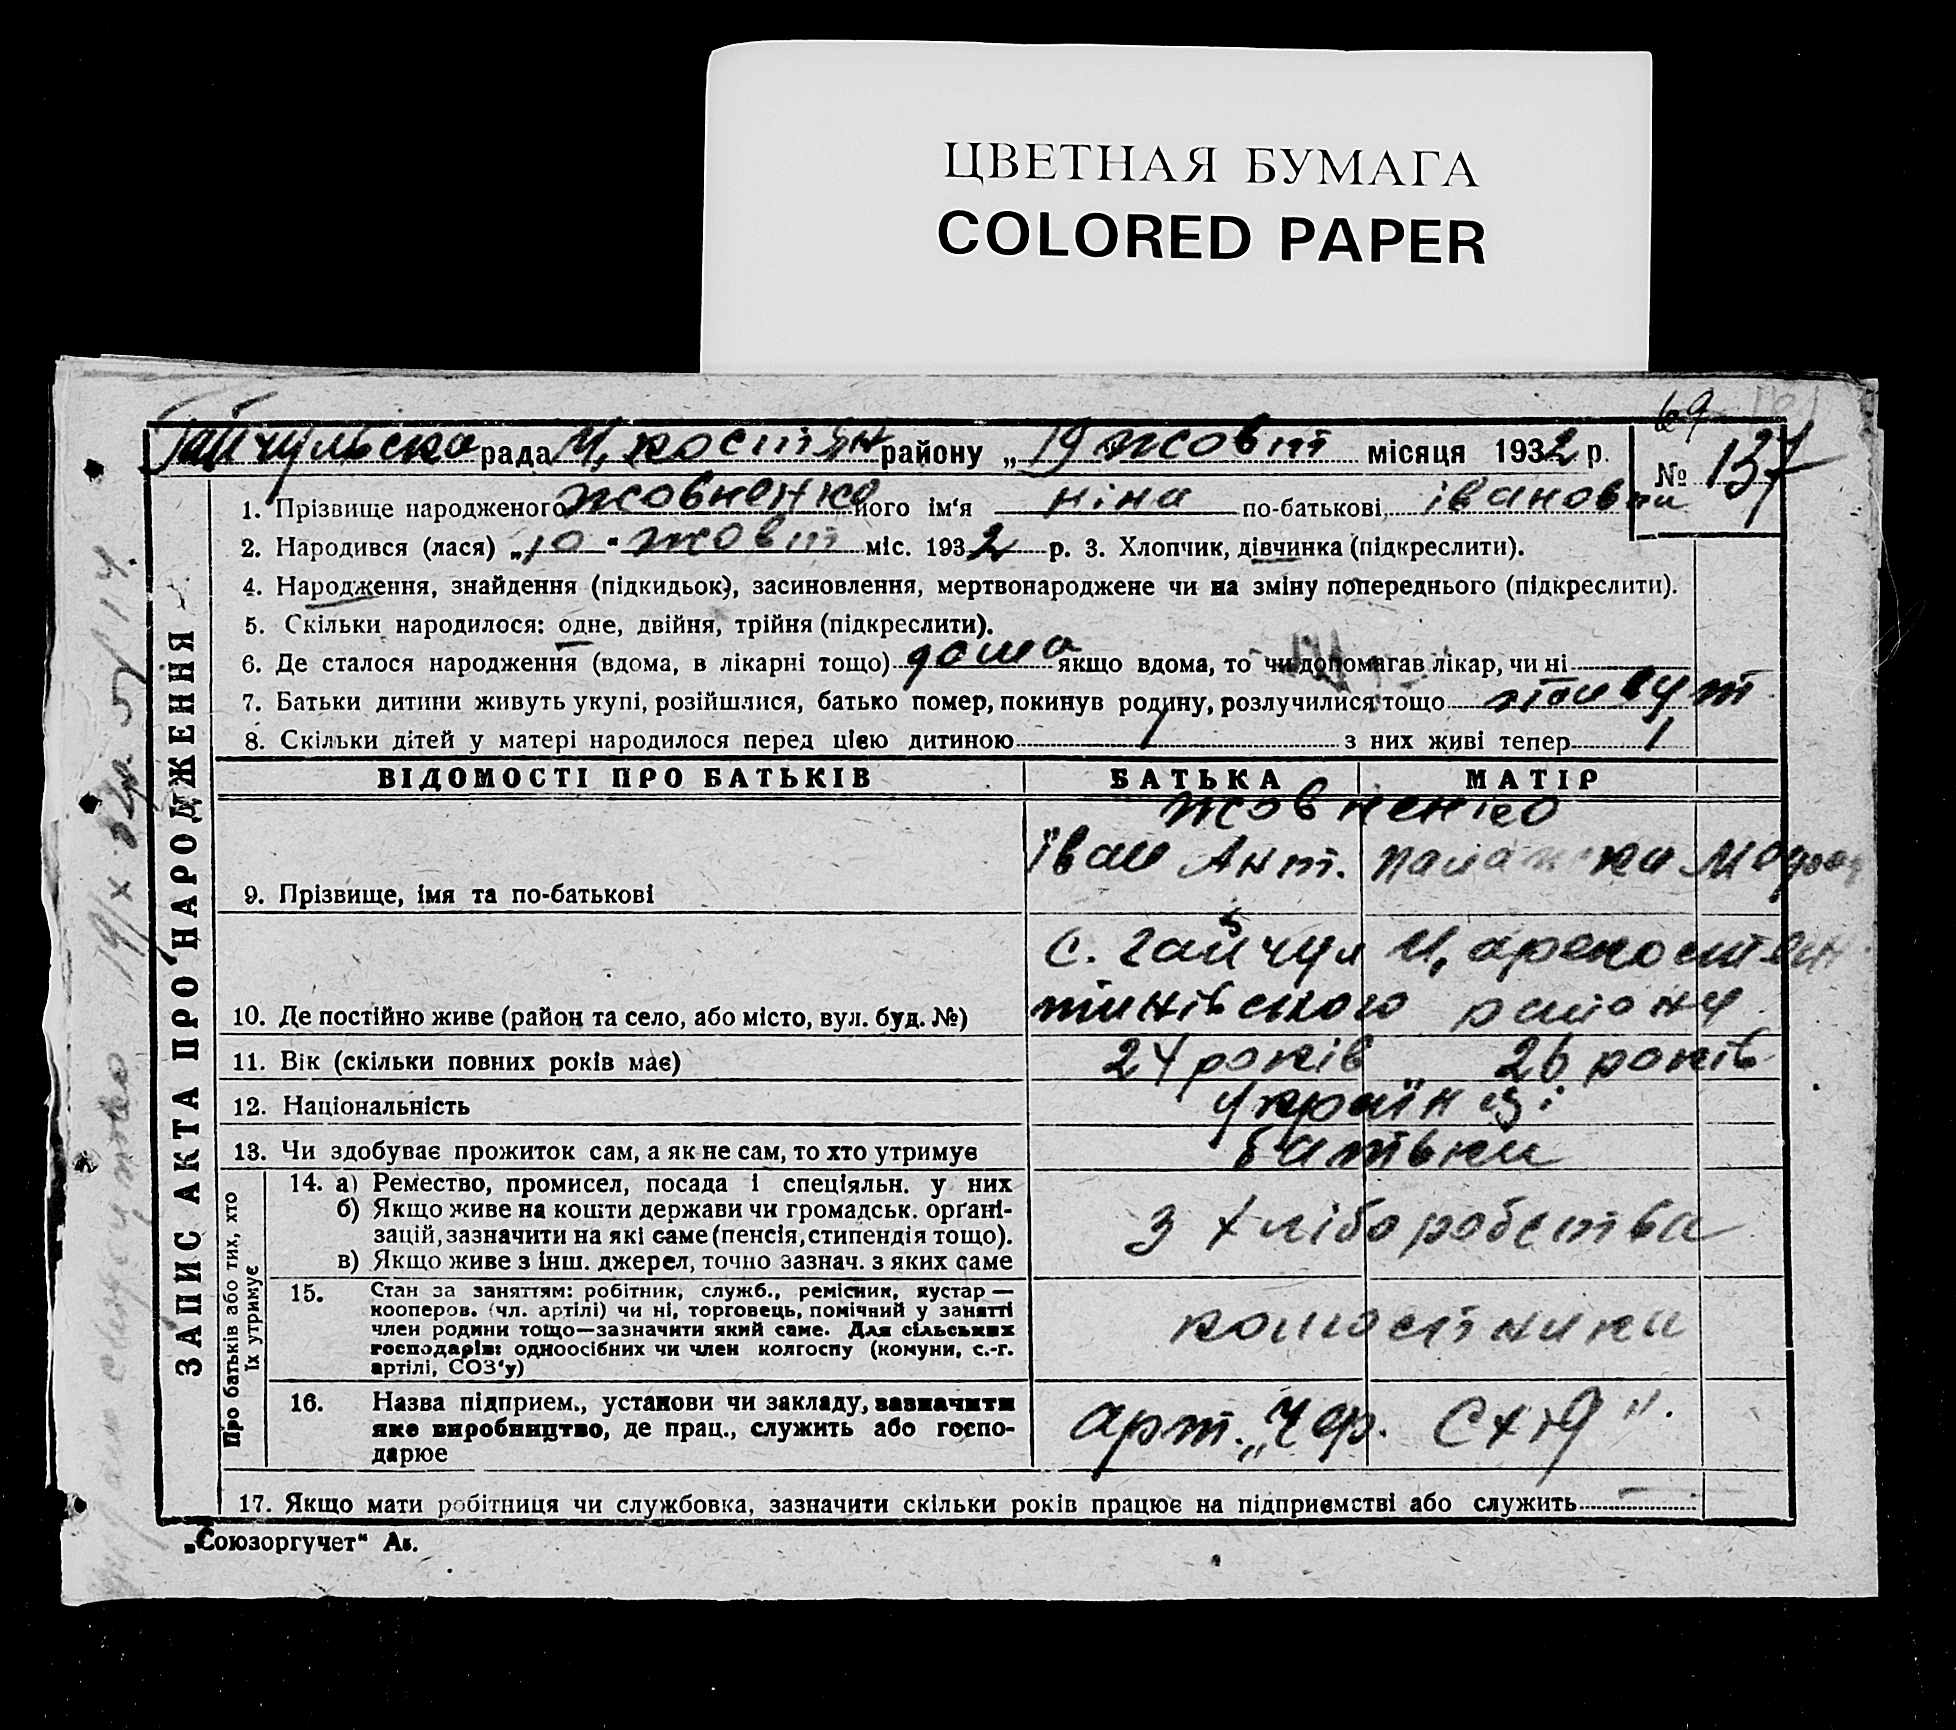 ЦВЕТНАЯ БУМАГА
COLORED PAPER
69
Гайчульска рада Н, костян району „19 жовт місяця 1932 р. № 137
1. Прізвище народженого Жовненко його ім‘я Ніна по-батькові, Івановна
2. Народився (лася) „10“ жовт міс. 1932 р. 3. Хлопчик, дівчинка (підкреслити).
4. Народження, знайдення (підкидьок), засиновлення, мертвонароджене чи на зміну попереднього (підкреслити).
5. Скільки народилося: одне, двійня, трійня (підкреслити).
6. Де сталося народження (вдома, в лікарні тощо) дома якщо вдома, то чи допомагав лікар, чи ні
7. Батьки дитини живуть укупі, розійшлися, батько помер, покинув родину, розлучилися тощо живут
8. Скільки дітей у матері народилося перед цією дитиною 1 з них живі тепер 1
ВІДОМОСТІ ПРО БАТЬКІВ БАТЬКА МАТІР
Жовненко
Іван Ант.
9. Прізвище, імя та по-батькові
с. Гайчул
10. Де постійно живе (район та село, або місто, вул. буд. №) тинівського району
11. Вік (скільки повних років має) 24 років 26 років
12. Національність українці
13. Чи здобуває прожиток сам, а як не сам, то хто утримує батьки
14. а) Ремество, промисел, посада і спеціяльн. у них
б) Якщо живе на кошти держави чи громадськ. орґані-
зацій, зазначити на які саме (пенсія, стипендія тощо).
з хліборобства
в) Якщо живе з інш. джерел, точно зазнач. з яких саме
15. Стан за заняттям: робітник, служб., ремісник, кустар —
кооперов. (чл. артілі) чи ні, торговець, помічний у занятті
член родини тощо—зазначити який саме. Для сільських
господарів: одноосібних чи член колгоспу (комуни, с.-г.
артілі, СОЗ‘у)
16. Назва підприєм., установи чи закладу, зазначити
яке виробництво, де прац., служить або госпо-
дарює
арт. „Чер. Схід“.
17. Якщо мати робітниця чи службовка, зазначити скільки років працює на підприємстві або служить
ЗАПИС АКТА ПРО НАРОДЖЕННЯ
Про батьків або тих, хто
їх утримує
„Союзоргучет“ Ак.